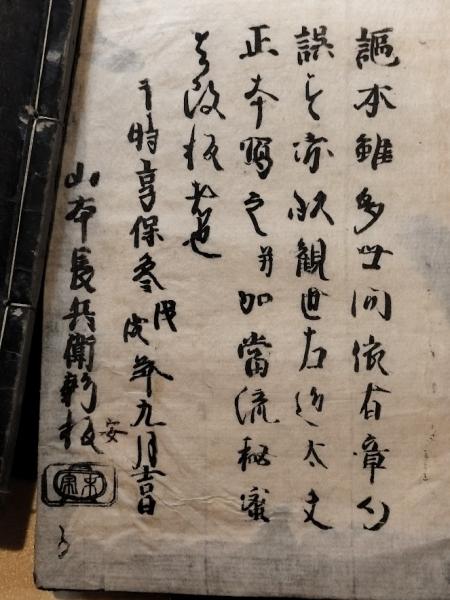 謳本雖多世間依有章句
誤之亦以観世左近太夫
正本写之并加當流秘密
令改板者也
于時享保参戊戌年九月吉日
山本長兵衛新板
安
本家